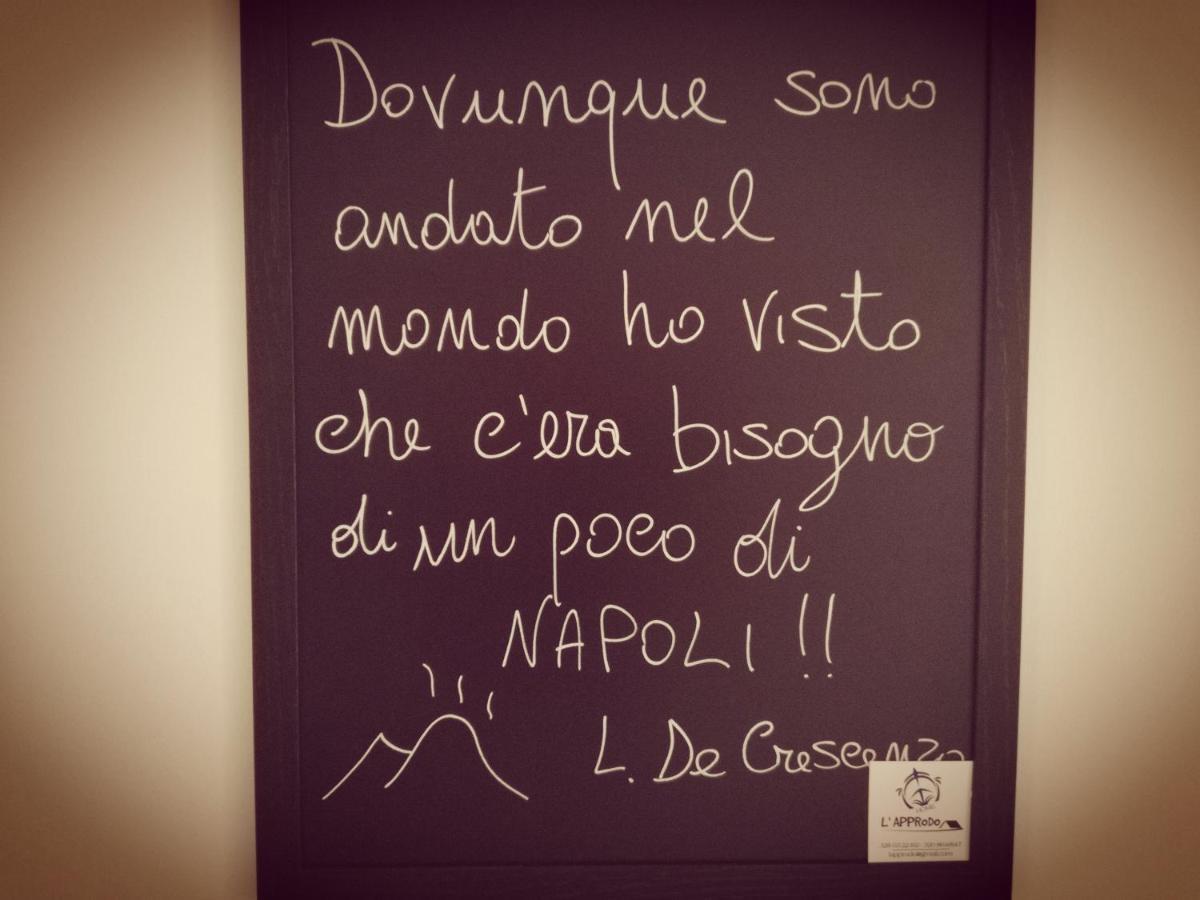 Dovunque sono
andato nel
mondo ho visto
che c'era bisogno
di un poco di
NAPOLI !!
L. De Crescenzo
L'APPRODO